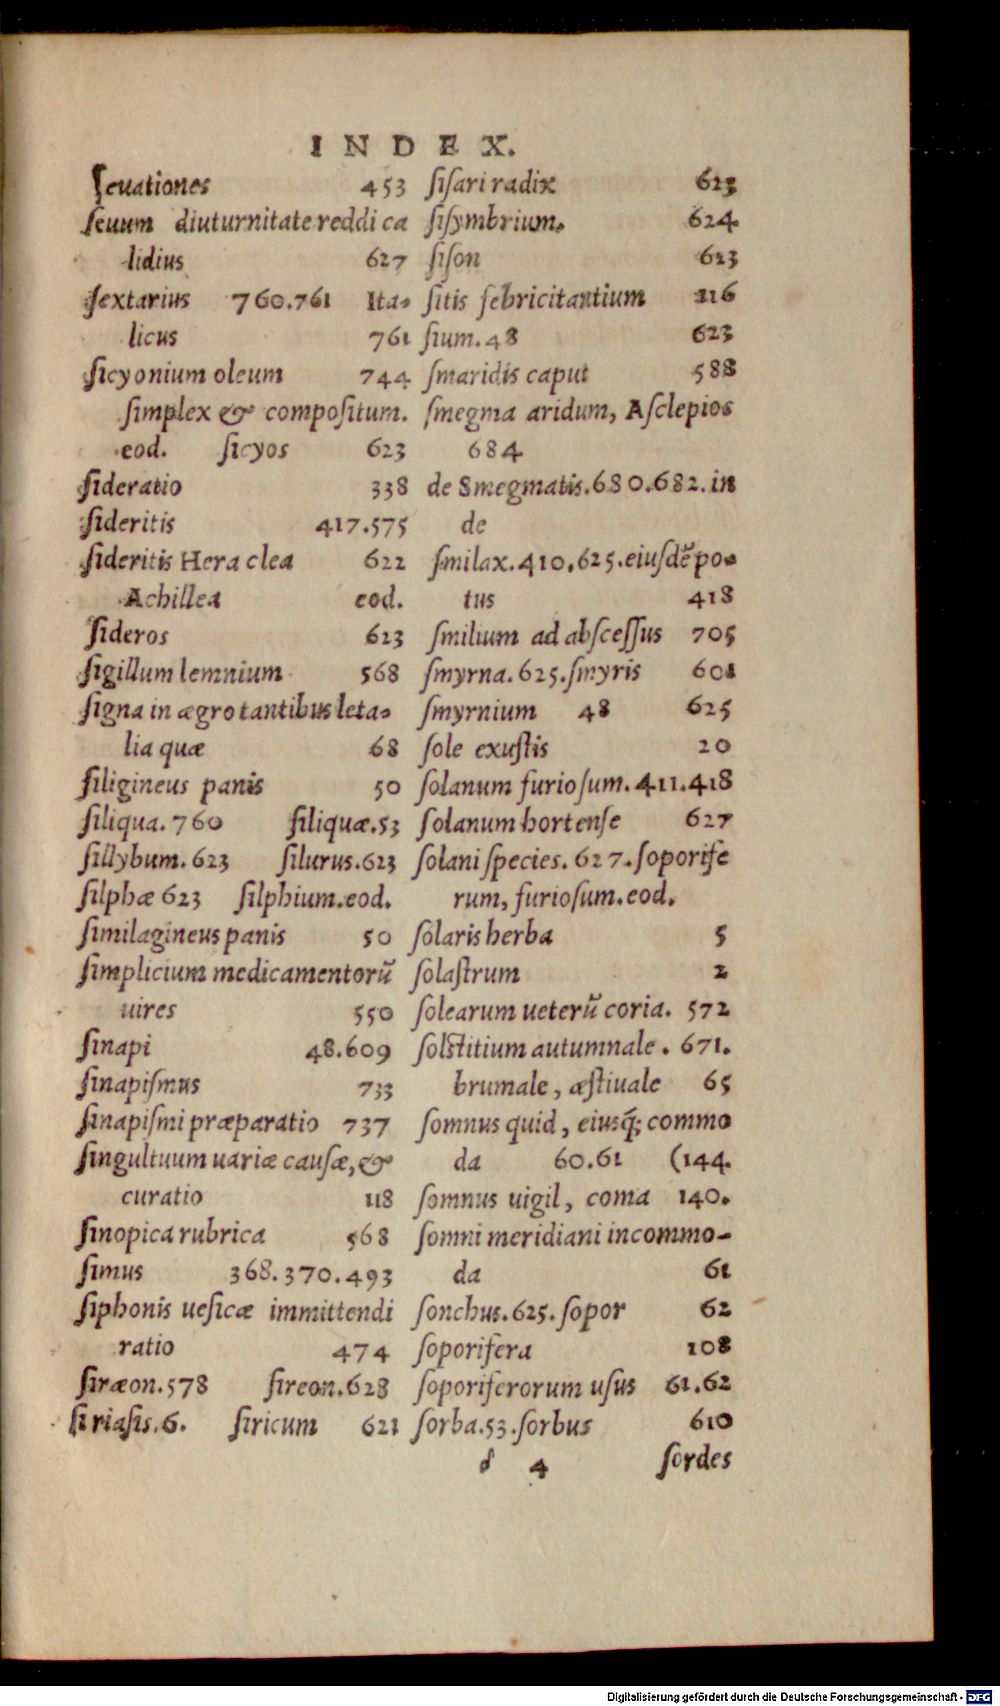 INDEX.
ſeuationes 453
ſeuum diuturnitate reddi ca
lidius 627
ſextarius 760.761 Ita-
licus 761
ſicyonium oleum 744
ſimplex & compoſitum.
eod. ſicyos 623
ſideratio 338
ſideritis 417.575
ſideritis Hera clea 622
Achillea eod.
ſideros 623
ſigillum lemnium 568
ſigna in ægrotantibus leta-
lia quæ 68
ſiligineus panis 50
ſiliqua.760 ſiliquæ.53
ſillybum.623 ſilurus.623
ſilphæ 623 ſilphium.eod.
ſimilagineus panis 50
ſimplicium medicamentorū
uires 550
ſinapi 48.609
ſinapiſmus 733
ſinapiſmi præparatio 737
ſingultuum uariæ cauſæ,&
curatio 118
ſinopica rubrica 568
ſimus 368.370.493
ſiphonis ueſicæ immittendi
ratio 474
ſiræon.578 ſireon.628
ſiriaſis.6. ſiricum 621
ſiſari radix 623
ſiſymbrium. 624.
ſiſon 623
ſitis febricitantium 116
ſium.48 623
ſmaridis caput 588
ſmegma aridum, Aſclepios
684
de Smegmatis.680.682.in
de
ſmilax.410.625.eiuſdē po-
tus 418
ſmilium ad abſceſſus 705
ſmyrna.625.ſmyris 601
ſmyrnium 48 625
ſole exuſtis 20
ſolanum furioſum.411.418
ſolanum hortenſe 627
ſolani ſpecies.627.ſoporife
rum, furioſum.eod.
ſolaris herba 5
ſolaſtrum 2
ſolearum ueterū coria. 572
ſolſtitium autumnale. 671.
brumale, æſtiuale 65
ſomnus quid, eiusq́; commo
da 60.61 (144.
ſomnus uigil, coma 140.
ſomni meridiani incommo-
da 61
ſonchus.625.ſopor 62
ſoporifera 108
ſoporiferorum uſus 61.62
ſorba.53.ſorbus 610
δ 4 ſordes
Digitalisierung gefördert durch die Deutsche Forschungsgemeinschaft - DFG